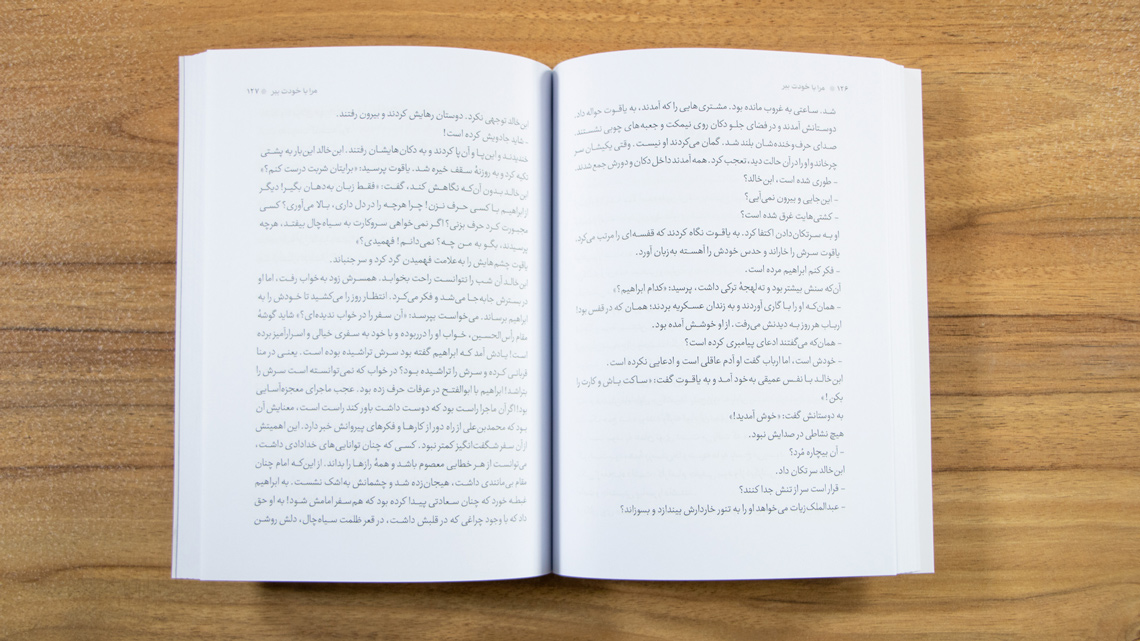 ۱۲۶ مرا با خودت ببر
شد. ساعتی به غروب مانده بود. مشتری‌هایی را که آمدند، به یاقوت حواله داد.
دوستانش آمدند و در فضای جلو دکان روی نیمکت و جعبه‌های چوبی نشستند.
صدای حرف و خنده‌شان بلند شد. گمان می‌کردند او نیست. وقتی یکیشان سر
چرخاند و او را در آن حالت دید، تعجب کرد. همه آمدند داخل دکان و دورش جمع شدند.
- طوری شده است، ابن‌خالد؟
- این‌جایی و بیرون نمی‌آیی؟
- کشتی‌هایت غرق شده است؟
او به سر تکان‌دادن اکتفا کرد. به یاقوت نگاه کردند که قفسه‌ای را مرتب می‌کرد.
یاقوت سرش را خاراند و حدس خودش را آهسته به‌زبان آورد.
- فکر کنم ابراهیم مرده است.
آن‌که سنش بیشتر بود و ته‌لهجهٔ ترکی داشت، پرسید: «کدام ابراهیم؟»
- همان‌که او را با گاری آوردند و به زندان عسکریه بردند؛ همان که در قفس بود!
ارباب هر روز به دیدنش می‌رفت. از او خوشش آمده بود.
- همان‌که می‌گفتند ادعای پیامبری کرده است؟
- خودش است، اما ارباب گفت او آدم عاقلی است و ادعایی نکرده است.
ابن‌خالد با نفس عمیقی به‌خود آمد و به یاقوت گفت: «ساکت باش و کارت را
بکن!»
به دوستانش گفت: «خوش آمدید!»
هیچ نشاطی در صدایش نبود.
- آن بیچاره مُرد؟
ابن‌خالد سر تکان داد.
- قرار است سر از تنش جدا کنند؟
- عبدالملک‌زیات می‌خواهد او را به تنور خاردارش بیندازد و بسوزاند؟
مرا با خودت ببر ۱۲۷
ابن‌خالد توجهی نکرد. دوستان رهایش کردند و بیرون رفتند.
- شاید جادویش کرده است!
خندیدند و این‌پا و آن‌پا کردند و به دکان‌هایشان رفتند. ابن‌خالد این‌بار به پشتی
تکیه کرد و به روزنهٔ سقف خیره شد. یاقوت پرسید: «برایتان شربت درست کنم؟»
ابن‌خالد بدون آن‌که نگاهش کند، گفت: «فقط زبان به‌دهان بگیر! دیگر
از ابراهیم با کسی حرف نزن! چرا هرچه را در دل داری، بالا می‌آوری؟ کسی
مجبورت کرد حرف بزنی؟ اگر نمی‌خواهی سروکارت به سیاه‌چال بیفتد، هرچه
پرسیدند، بگو به من چه؟ نمی‌دانم! فهمیدی؟»
یاقوت چشم‌هایش را به علامت فهمیدن گرد کرد و سر جنباند.
ابن‌خالد آن شب را نتوانست راحت بخوابد. همسرش زود به‌خواب رفت، اما او
در بسترش جابه‌جا می‌شد و فکر می‌کرد. انتظار روز را می‌کشید تا خودش را به
ابراهیم برساند. می‌خواست بپرسد: «آن سفر را در خواب ندیده‌ای؟» شاید گوشهٔ
مقام رأس‌الحسین، خواب او را در ربوده و با خود به سفری خیالی و اسرارآمیز برده
است! یادش آمد که ابراهیم گفته بود سرش تراشیده بوده است. یعنی در منا
قربانی کرده و سرش را تراشیده بود؟ در خواب که نمی‌توانسته است سرش را
بتراشد! ابراهیم با ابوالفتح در عرفات حرف زده بود. عجب ماجرای معجزه‌آسایی
بود! اگر آن ماجرا راست بود که دوست داشت باور کند راست است، معنایش آن
بود که محمدبن‌علی از راه دور از کارها و فکرهای پیروانش خبر دارد. این اهمیتش
از آن سفر شگفت‌انگیز کمتر نبود. کسی که چنان توانایی‌های خدادادی داشت،
می‌توانست از هر خطایی معصوم باشد و همهٔ رازها را بداند. از این‌که امام چنان
مقام بی‌مانندی داشت، هیجان‌زده شد و چشمانش به‌اشک نشست. به ابراهیم
غبطه خورد که چنان سعادتی پیدا کرده بود که هم‌سفر امامش شود! به او حق
داد که با وجود چراغی که در قلبش داشت، در قعر ظلمت سیاه‌چال، دلش روشن